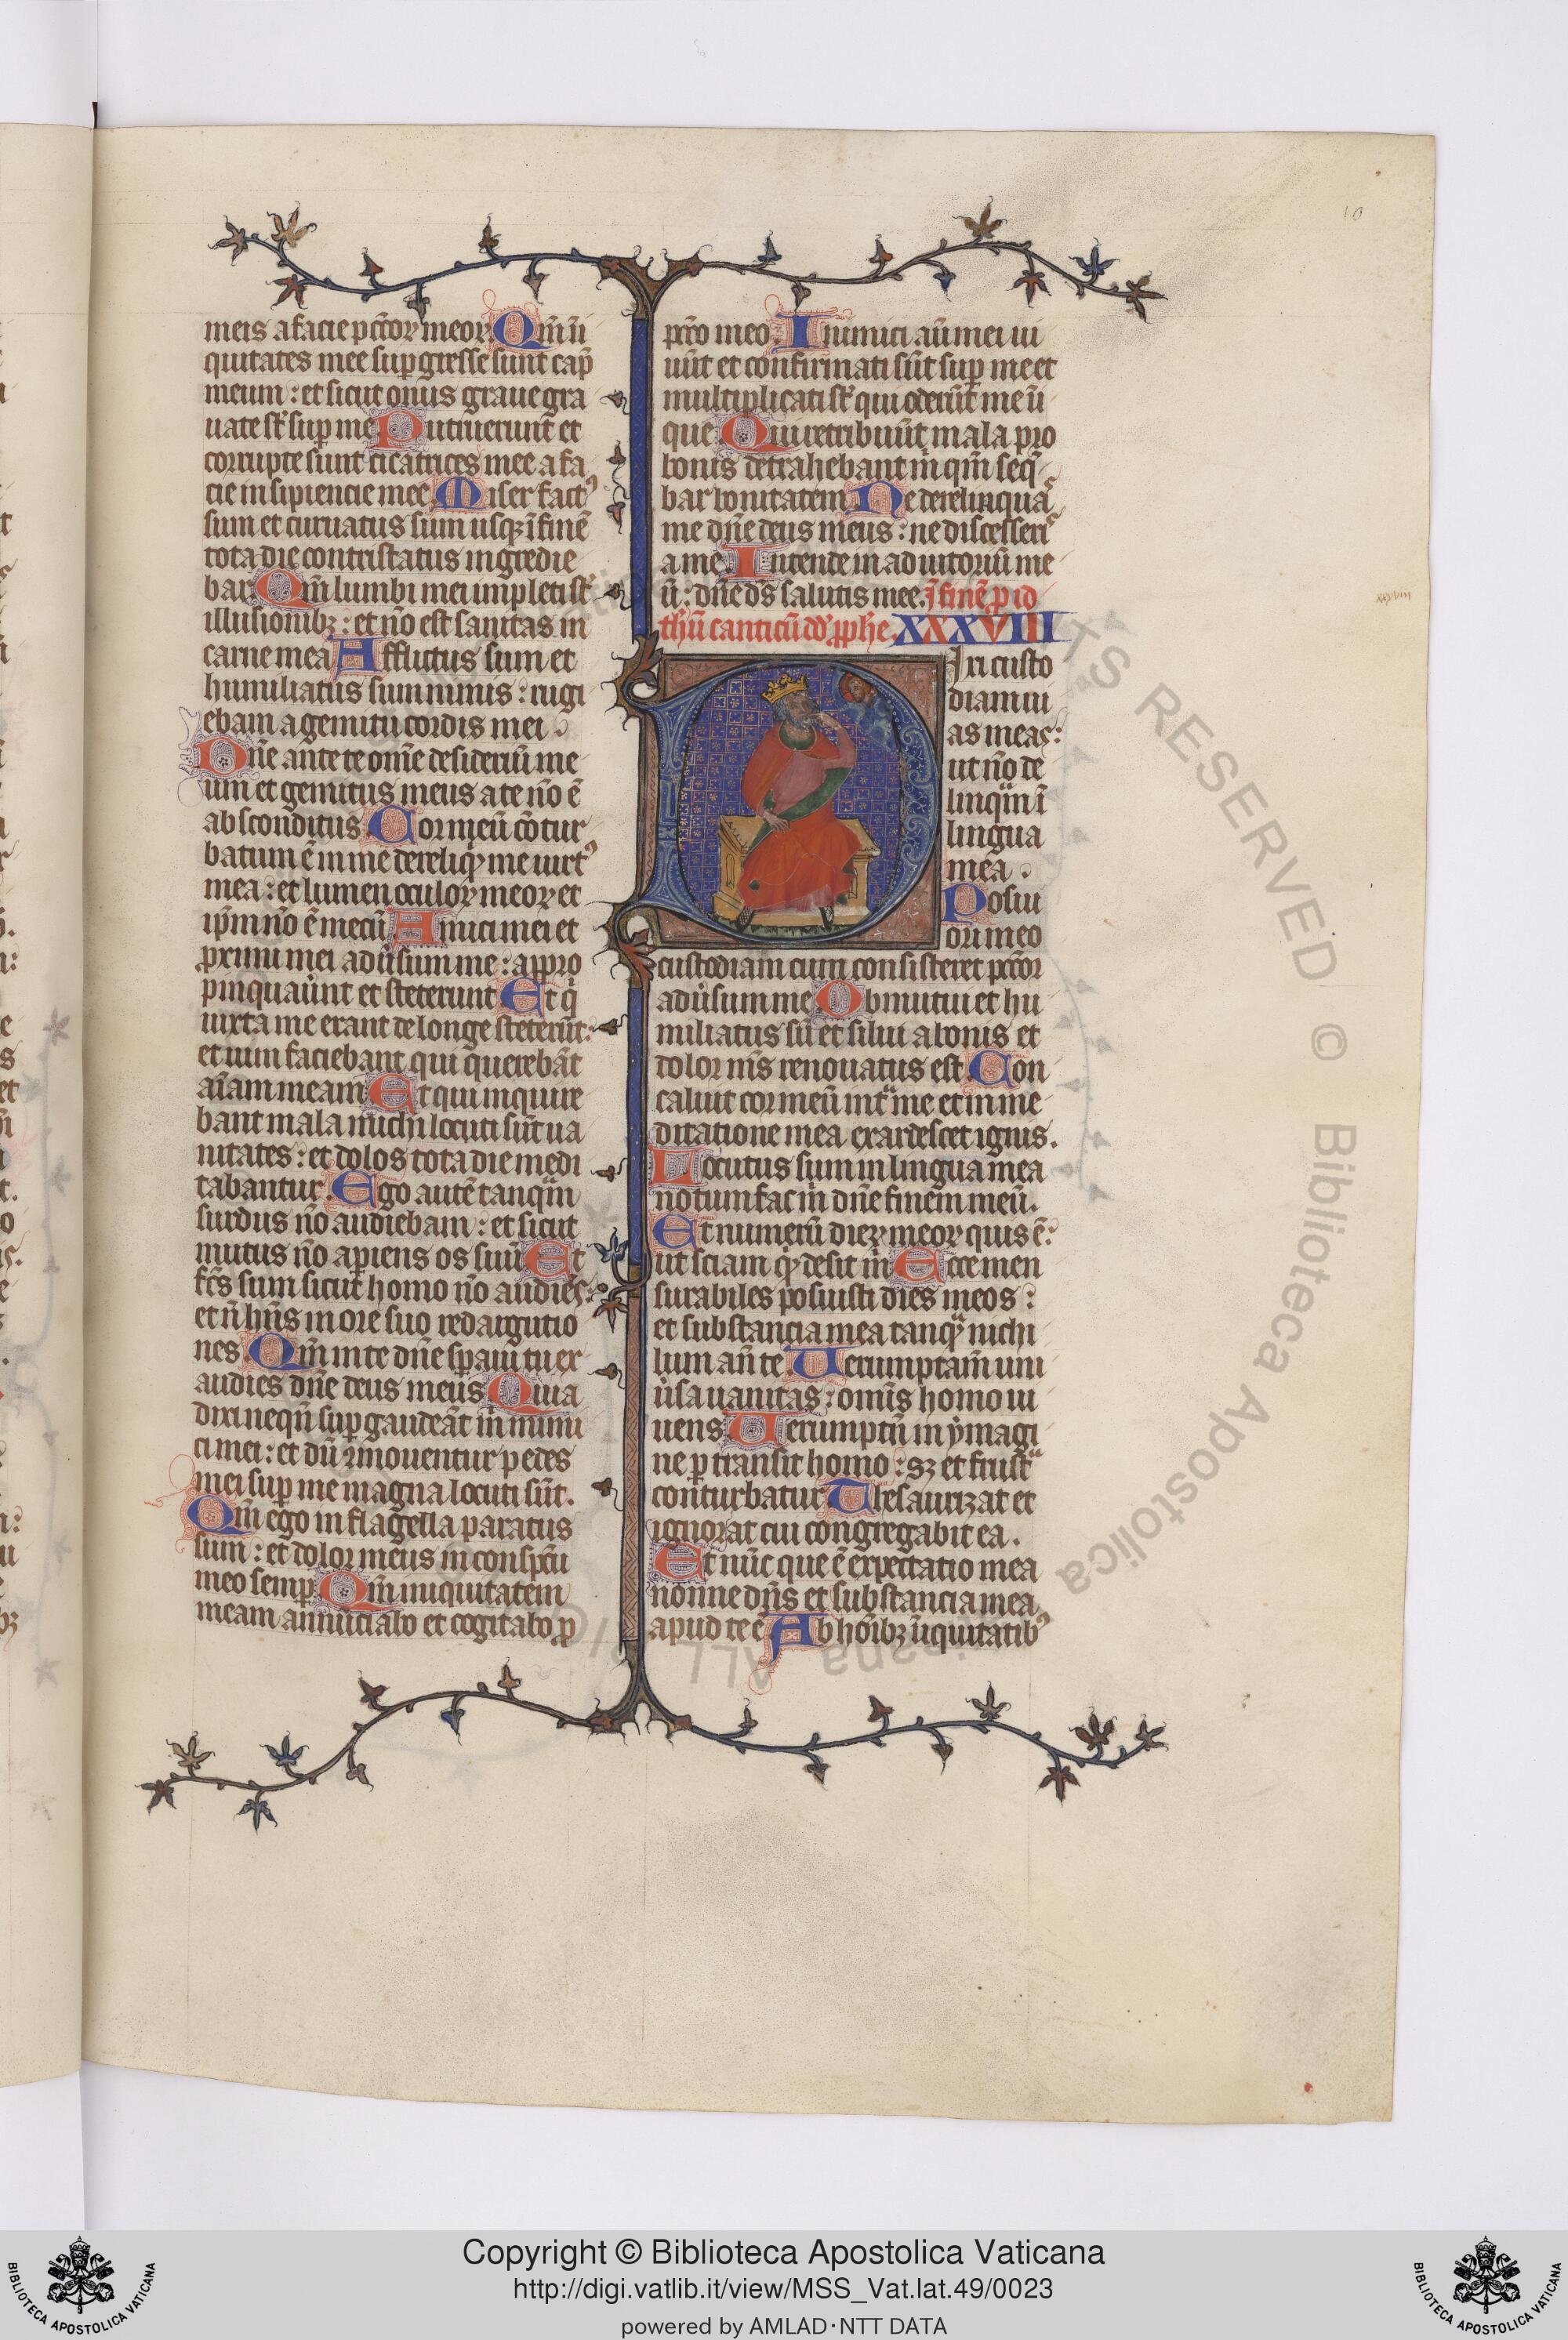 10
meis a facie pctōꝝ meoꝝ. Qm̄ īi
quitates mee sup̱gresse sunt cap̄
meum : et sicut onus graue gra
uate st̄ sup̱ me Putruerunt et
corrupte sunt cicatrices mee a fa
cie insipiencie mee. Miser factꝰ
sum et curuatus sum usqꝫ ī finē
tota die contristatus ingredie
bar Qm̄ lumbi mei impleti st̄
illusionibꝫ : et nō est sanitas in
carne mea Afflictus sum et
humiliatus sum nimis : rugi
ebam a gemitu cordis mei.
Dn̄e ante te om̄e desideriū me
um et gemitus meus a te nō ē
absconditus. Cor meū cōtur
batum ē in me dereliqͥ me uirtꝰ
mea : et lumen oculoꝝ meoꝝ et
ip̄m nō ē mecū Amici mei et
ꝓximi mei adūsum me : appro
pinquauer̄nt et steterunt Et qͥ
iuxta me erant de longe steterūt :
et uim faciebant qui querebāt
aīam meam Et qui inquire
bant mala michi locuti sūt ua
nitates : et dolos tota die medi
tabantur. Ego autē tanqᵃm
surdus nō audiebam : et sicut
mutus nō aꝑiens os suū Et
fc̄s sum sicut homo nō audiēs :
et n̄ hn̄s in ore suo redargutio
nes. Qm̄ in te dn̄e sp̱aui tu ex
audies dn̄e deus meus Quia
dixi neqn̄ sup̱ gaudeāt m̄ inimi
ci mei : et dū ꝯmouentur pedes
mei sup̱ me magna locuti sūt.
Qm̄ ego in flagella paratus
sum : et dolor meus in conspc̄u
meo semp̱. Qm̄ iniquitatem
meam annūciabo et cogitabo ꝑ
pctō meo. Inimici aūt mei ui
uūt et confirmati sūt sup̱ me et
multiplicati st̄ qui oderūt me īi
que Qui retribuūt mala pro
bonis detrahebant m̄ qm̄ seqͣ
bar bonitatem Ne derelinquaˢ
me dn̄e deus meus : ne discesserˢ
a me. Intende in adiutoriū me
ū : dn̄e dˢ salutis mee. J finē ꝑ id
thū canticū dd̄ ꝓphe. XXXVIII
xxxviii
Dixi custo
diam ui
as meas :
ut nō de
linqᵃm ī
lingua
mea.
Posui
ori meo
custodiam cum consisteret pctōr
adūsum me Obmutui et hu
miliatus sū et silui a bonis et
dolor m̄s renouatus est Con
caluit cor meū intᵃ me et in me
ditatione mea exardescet ignis.
Locutus sum in lingua mea
notum fac m̄ dn̄e finem meū.
Et numerū dieꝝ meoꝝ quis ē :
ut sciam qͥd desit m̄ Ecce men
surabiles posuisti dies meos :
et substancia mea tanqͣ nichi
lum an̄ te. Uerumptam̄ uni
ūsa uanitas : omīs homo ui
uens Uerumptn̄ in ymagi
ne ꝑtransit homo : sꝫ et frustᵃ
conturbatur Thesaurizat et
ignorat cui congregabit ea.
Et nūc que ē expectatio mea
nonne dn̄s et substancia mea
apud te ē Ab hōibꝫ iniquitatibꝰ
Copyright © Biblioteca Apostolica Vaticana
http://digi.vatlib.it/view/MSS_Vat.lat.49/0023
powered by AMLAD·NTT DATA
BIBLIOTECA APOSTOLICA VATICANA
BIBLIOTECA APOSTOLICA VATICANA